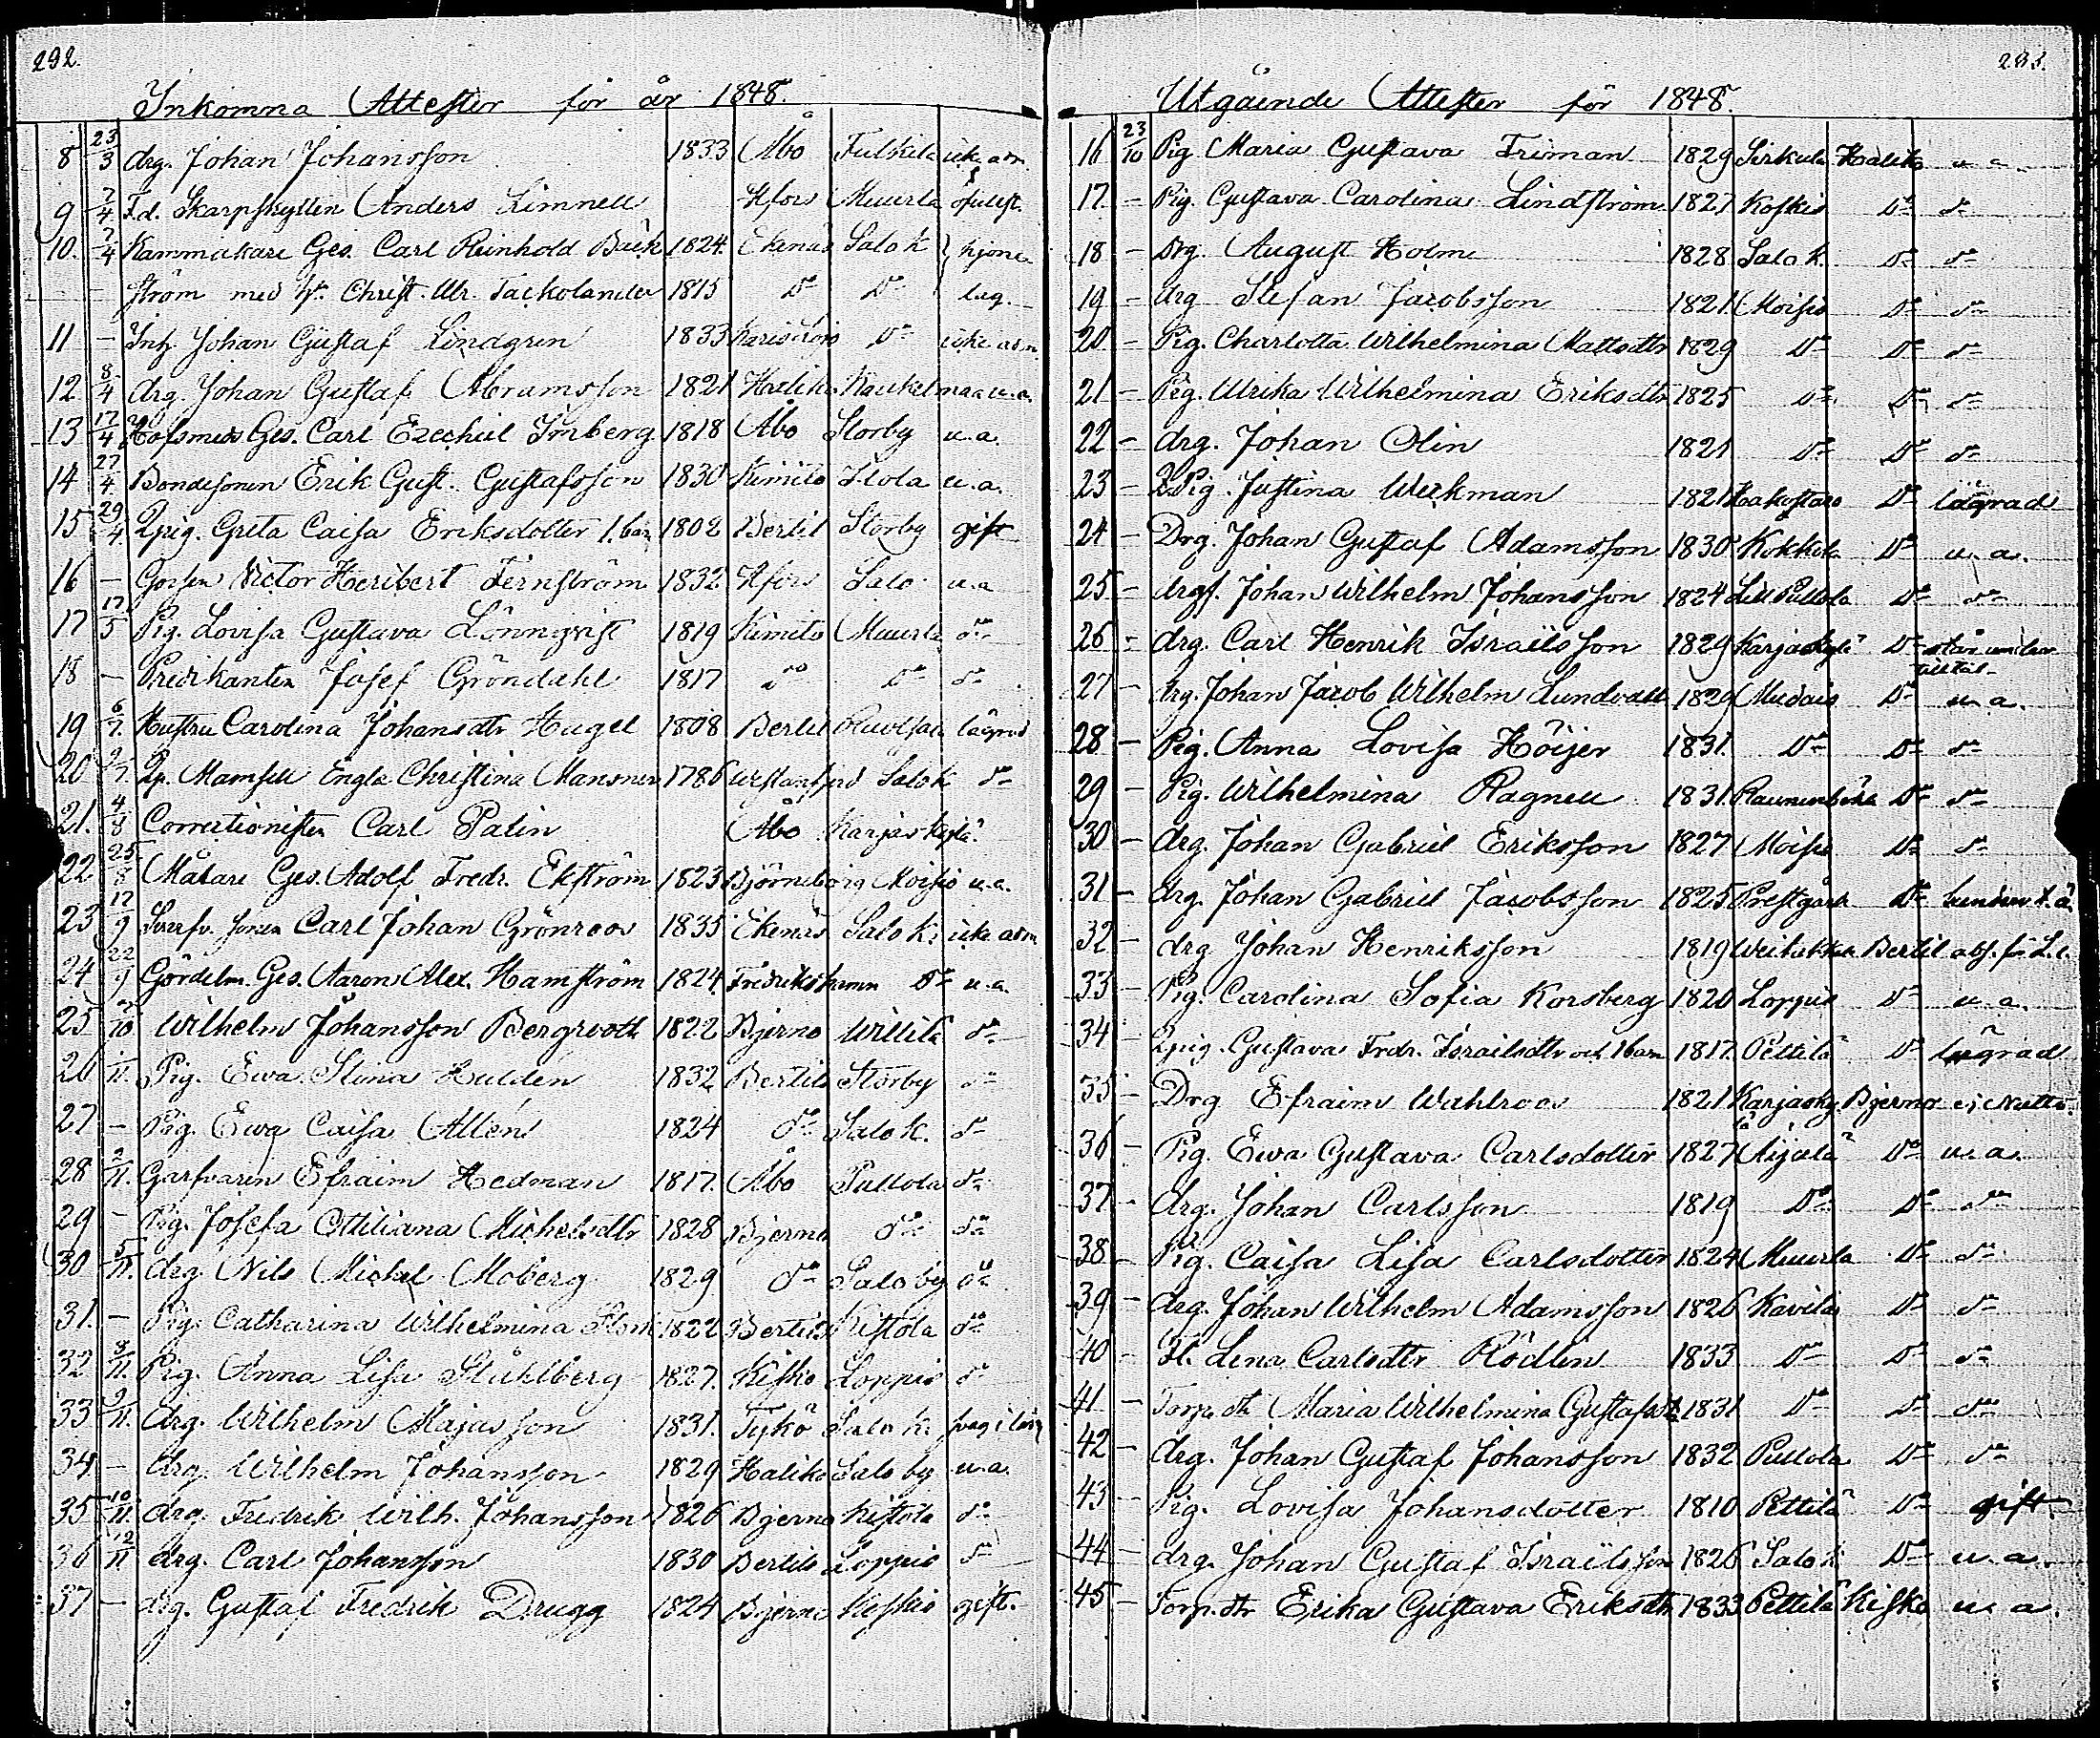 292.
Inkomna Attester för år 1848.
8 23/3 drg. Johan Johansson 1833 Åbo icke adm
9 7/4 Fd. Skarpskytten Anders Limnell Hfors Muurla
10. 7/4 Kammakare Ges. Carl Reinhold Bäck 1824. Ekenäs Salo k
ström med h. Christ. Ulr. Tackolander 1815 Do Do
11 – Johan Gustaf Lindgren 1833 Do icke adm
12 8/4 drg. Johan Gustaf Abramsson 1821 Haliko u.a.
13 17/4 Ges. Carl Ezechiel Imberg 1818 Åbo Storby u.a.
14 27/4 Bondesonen Erik Gust. Gustafsson 1830 Kimito Ilola u.a.
15 29/4 Qpig. Greta Caisa Eriksdotter 1. barn 1802 Bertil Storby gift
16 – Gossen Victor Heribert Fernström 1832 Hfors Salo u.a
17 17/5 Pig. Lovisa Gustava Lönnqvist 1819 Kimito Muurla do
18 – Predikanten Josef Gröndahl 1817 do Do do
19 6/7. Hustru Carolina Johansdtr Hagel 1808 Bertil lägrad
20 9/7. Mamsell Engla Christina 1786 Westanfjerd Salo k do
21. 4/8 Correctionisten Carl Palin Åbo Karjaskylä
22 25/8 Målare Ges. Adolf Fredr. Ekström 1823 Björneborg Moisio u.a.
23 17/9 Carl Johan Grönroos 1835 Ekenäs Salo k. icke adm
24 22/9 Gördelm. Ges. Aaron Alex. Hamström 1824. Fredrikshamn Do u.a.
25 /10 Wilhelm Johansson Bergroth 1822 Bjerno do
26 /11. Pig. Ewa Stina Huldén 1832 Bertils Storby do
27 – Pig. Ewa Caisa Allén 1824 do Salo k. do
28 2/11. Garfvaren Efraim Hedman 1817. Åbo Pullola do
29 – Pig. Josefa Ottiliana Michelsdtr 1828 Bjerno do do
30 5/11. drg. Nils Michel Moberg 1829 do Salo by do
31. – Pig. Catharina Wilhelmina 1822 Bertils Kistola do
32 8/11. Pig. Anna Lisa Stuhlberg 1827. Kisko Loppis do
33 9/11. drg. Wilhelm Majasson 1831. Tykö Salo k.
34 – drg. Wilhelm Johansson 1829 Haliko Salo by u.a.
35 10/11. drg. Fredrik Wilh. Johansson 1826 Bjerno Kistola do
36 12/11 drg. Carl Johansson 1830 Bertils Loppis do
37 – drg. Gustaf Fredrik Drugg 1824 Bjerno Koskis gift.
293.
Utgående Attester för 1848.
16 23/10 Pig Maria Gustava Friman 1829 Haliko u a
17 – Pig. Gustava Carolina Lindström 1827 Koskis Do do
18 – Drg. August Holm 1828 Salo k. Do do
19 – drg Stefan Jacobsson 1821. Moisio Do do
20 – Pig. Charlotta Wilhelmina Mattsdtr 1829 Do Do do
21 – Pig. Ulrika Wilhelmina Eriksdtr 1825 Do Do do
22 – drg. Johan Olin 1821 Do Do do
23 – Qpig. Justina Weckman 1821 Do lägrad
24 – Drg. Johan Gustaf Adamsson 1830 Kokkila Do u.a.
25 – Johan Wilhelm Johansson 1824 Do do
26 – drg. Carl Henrik Israëlsson 1829 Karjaskylä Do står under
tilltal
27 – drg. Johan Jacob Wilhelm Lundvall 1829 Do u.a.
28 – Pig. Anna Lovisa Höijer 1831. Do Do do
29 – Pig. Wilhelmina Ragnell 1831. Do do
30 – drg. Johan Gabriel Eriksson 1827 Moisio Do do
31 – drg. Johan Gabriel Jacobsson 1825 Prestgård Do
32 – drg Johan Henriksson 1819 Bertil
33 – Pig. Carolina Sofia Korsberg 1820 Loppis Do u.a.
34 – Qpig. Gustava Fredr. Israilsdtr och 1 barn 1817. Pettilä Do lägrad
35 – Drg Efraim Wahlroos 1821 Karjasky. Bjerno
36 – Pig. Ewa Gustava Carlsdotter 1827 Äijälä Do u.a.
37 – drg. Johan Carlsson 1819 Do Do do
38 – Pig. Caisa Lisa Carlsdotter 1824 Muurla Do do
39 – drg. Johan Wilhelm Adamsson 1826 Kavila Do do
40 – Fl. Lena Carlsdtr Rödlin 1833 Do Do do
41 – Torp. dtr Maria Wilhelmina Gustafsdtr 1831 Do Do do
42 – drg. Johan Gustaf Johansson 1832 Pullola Do do
43 – Pig. Lovisa Johansdotter 1810 Pettilä Do gift.
44 – drg. Johan Gustaf Israëlsson 1826 Salo k Do u.a.
45 – Torp. dtr Erika Gustava Eriksdtr 1833 Pettilä Kisko u. a.